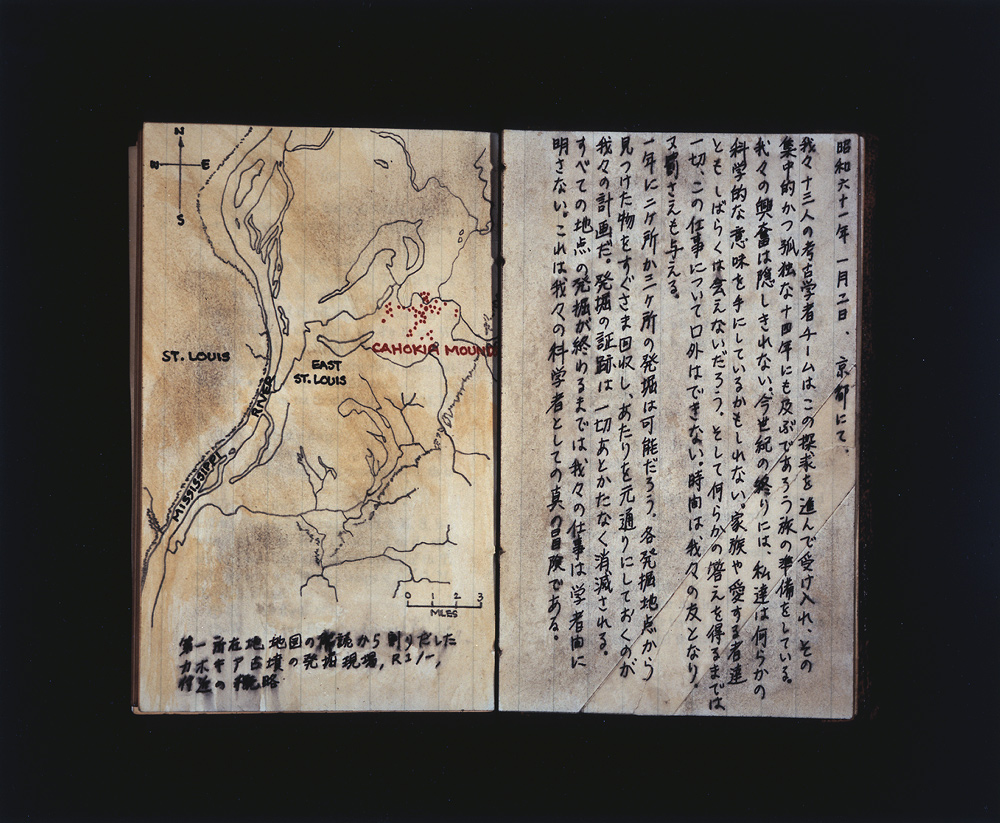 N
W E
S
ST. LOUIS
EAST
ST. LOUIS
CAHOKIA MOUND
RIVER
MISSISSIPPI
0 1 2 3
MILES
第一所在地地図の解読から割りだした
カホキア古墳の発掘現場,
付近の概略
昭和六十一年 一月二日、 京都にて.
我々十三人の考古学者チームはこの探求を進んで受け入れ、その
集中的かつ孤独な十四年にも及ぶであろう旅の準備をしている。
我々の興奮は隠しきれない。今世紀の終りには、私達は何らかの
科学的な意味を手にしているかもしれない。家族や愛する者達
ともしばらくは会えないだろう。そして何らかの答えを得るまでは
一切、この仕事について口外はできない。時間は、我々の友となり、
又罰さえも与える。
一年に二ケ所か三ケ所の発掘は可能だろう。各発掘地点から
見つけた物をすぐさま回収し、あたりを元通りにしておくのが
我々の計画だ。発掘の証跡は一切あとかたなく消滅される。
すべての地点の発掘が終わるまでは、我々の仕事は学者由に
明さない。これは我々の科学者としての真の冒険である。